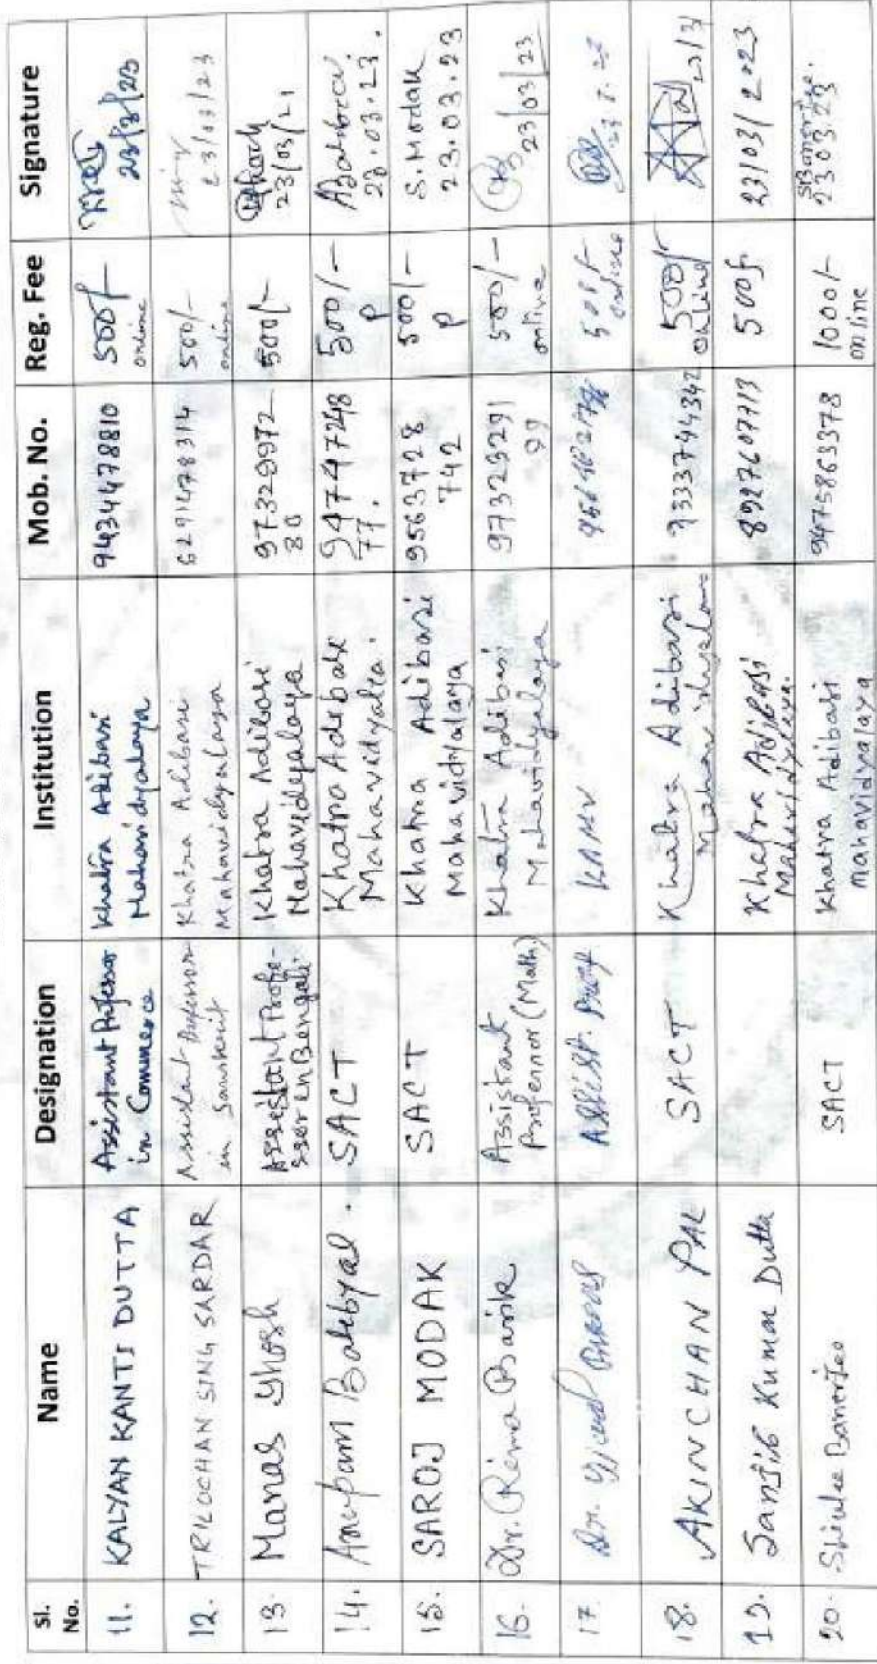 Sl. No. Name Designation Institution Mob. No. Reg. Fee Signature
11. KALYAN KANTI DUTTA Assistant Professor in Commerce Khatra Adibasi Mahavidyalaya 9434478810 500/- online 23/3/23
12. TRILOCHAN SING SARDAR Assistant Professor in Sanskrit Khatra Adibasi Mahavidyalaya 6291478314 500/- online 23/03/23
13. Manas Ghosh Assistant Profe-ssor in Bengali Khatra Adibasi Mahavidyalaya 97329972 80 500/- Ghosh 23/03/21
14. Anupam Batabyal. SACT Khatra Adibasi Mahavidyalta. 94747248 77. 500/- P 23.03.23.
15. SAROJ MODAK SACT Khatra Adibasi Mahavidyalaya 9563728 742 500/- P S. Modak 23.03.23
16. Dr. Rena Barik Assistant Professor (Math) Khatra Adibasi Mahavidyalaya 97323291 99 500/- online 23/03/23
17 Dr. Assist. Prof KAMV 500/- online
18. AKINCHAN PAL SACT Khatra Adibasi Mahavidyalaya 9333744342 500/- online
19. Sanjib Kumar Dutta Khatra Adibasi Mahavidyalaya. 8927607713 500/- 23/03/2023
20. Shiulee Banerjee SACT Khatra Adibasi Mahavidyalaya 9475863378 1000/- online SBanerjee. 23.03.23